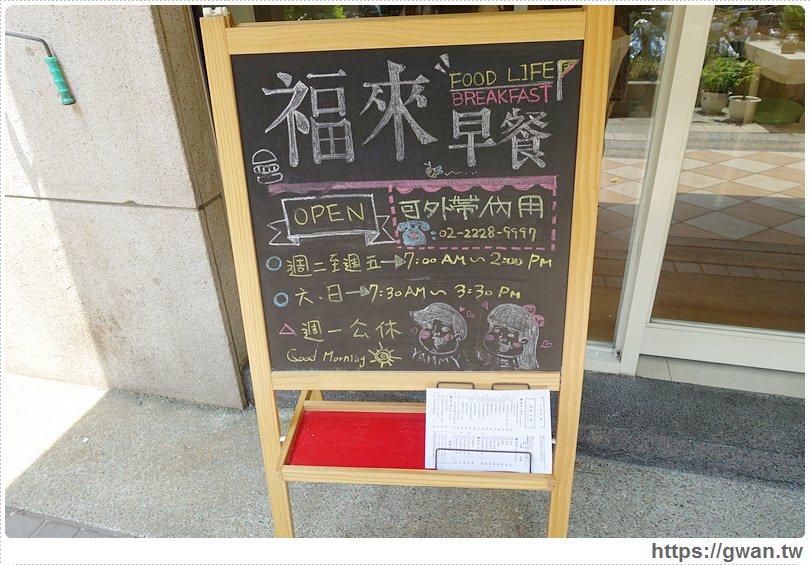 福來早餐
FOOD LIFE
BREAKFAST
OPEN
可外帶內用
02-2228-9997
週二至週五→7:00 AM～2:00 PM
六、日→7:30 AM～3:30 PM
週一公休
Good Morning
YAMMY
https://gwan.tw